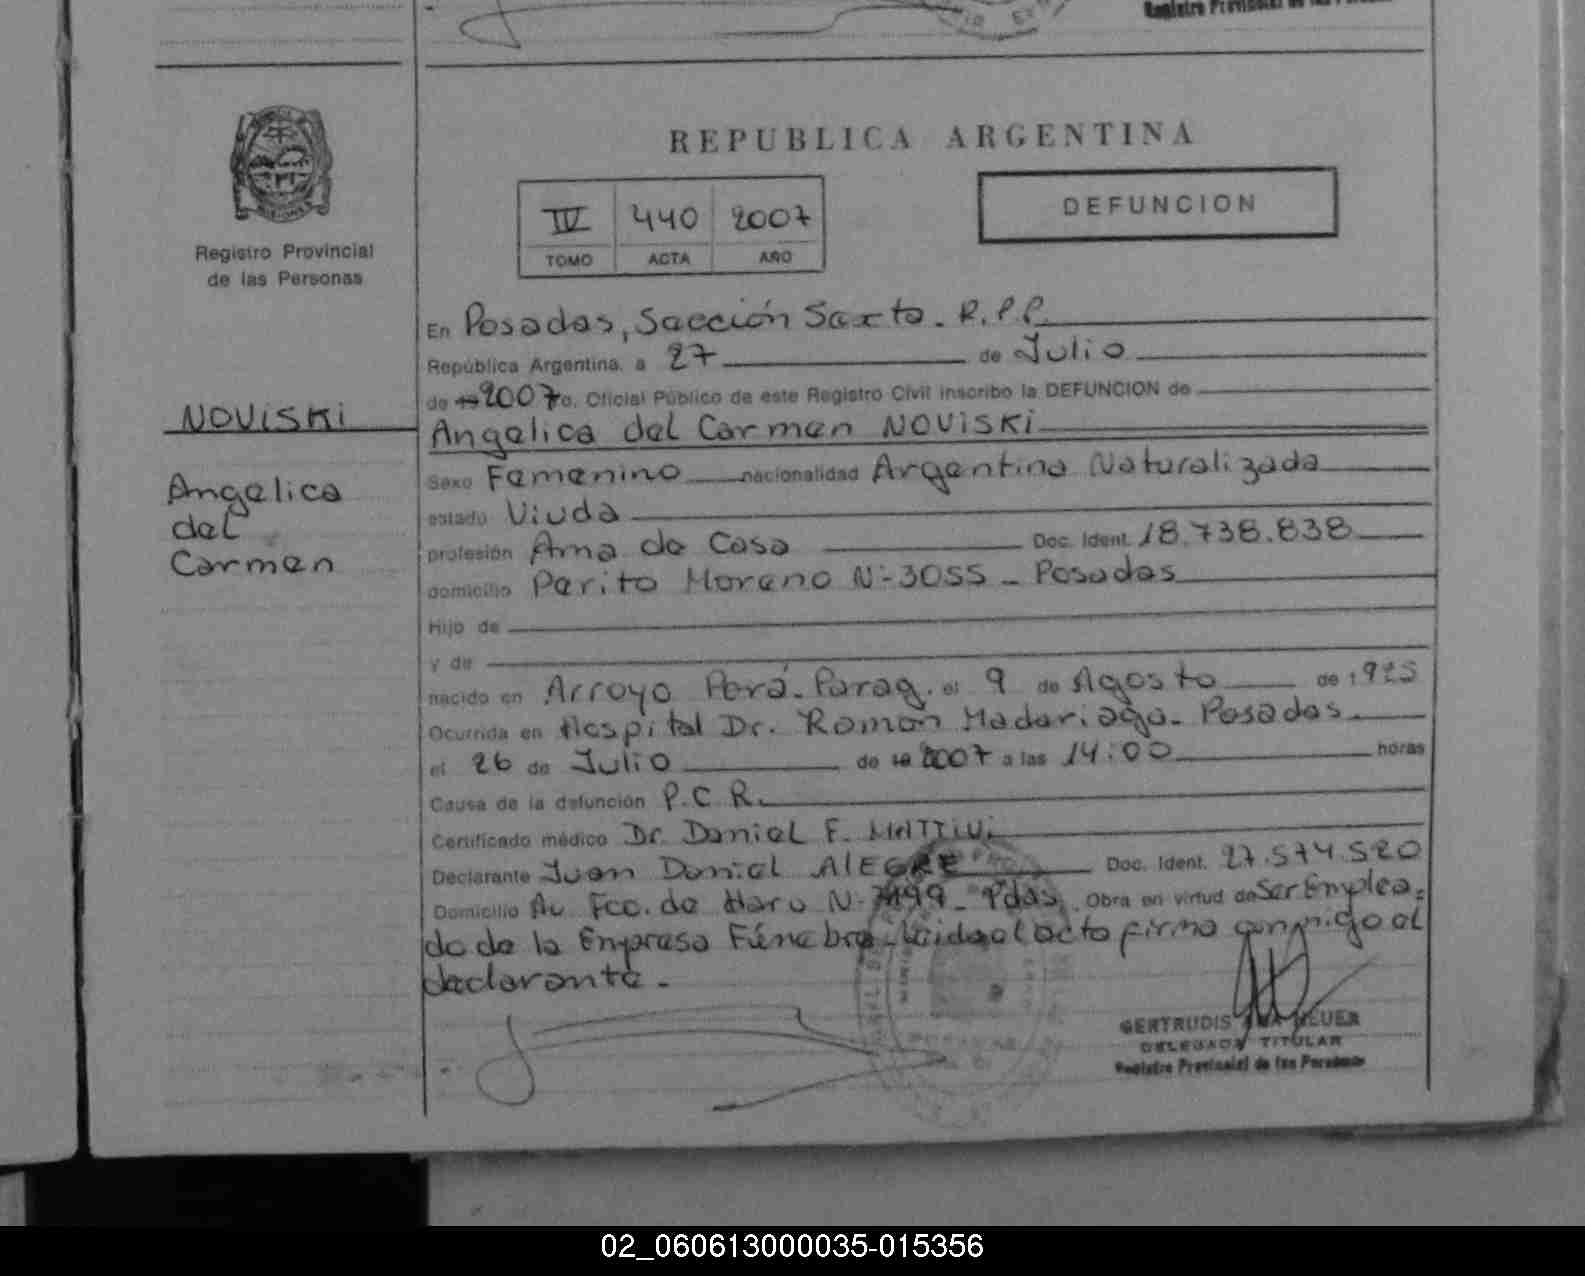 Registro Provincial de las Personas
REPUBLICA ARGENTINA
IV 440 2007
TOMO ACTA AÑO
DEFUNCION
MISIONES
Registro Provincial
de las Personas
NOViSKi
Angelica
del
Carmen
En Posadas, Sección Sexta. R.P.P.
República Argentina, a 27 de Julio
de 19 2007 yo, Oficial Público de este Registro Civil inscribo la DEFUNCION de
Angelica del Carmen NOViSKi
Sexo Femenino nacionalidad Argentina Naturalizada
estado Viuda
profesión Ama de Casa Doc. Ident. 18.738.838
domicilio Perito Moreno N- 3055 - Posadas
Hijo de
y de
nacido en Arroyo Porá - Parag. el 9 de Agosto de 1925
Ocurrida en Hospital Dr. Ramon Madariaga - Posadas
el 26 de Julio de 19 2007 a las 14:00 horas
Causa de la defunción P.C.R.
Certificado médico Dr. Daniel F.
Declarante Juan Daniel ALEGRE Doc. Ident. 27.574.520
Domicilio Av. Fco. de Haro N- Pdas. Obra en virtud de Ser Emplea=
do de la Empresa Fúnebre - Leida el acto firma conmigo el
declarante.-
GERTRUDIS
DELEGADA TITULAR
Registro Provincial de las Personas
02_060613000035-015356